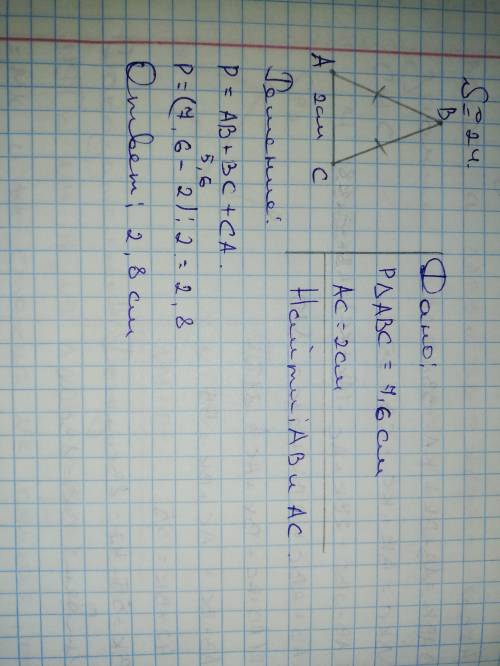 № 24.
B
A
2см
C
Дано:
PΔABC = 7,6 см
AC = 2см
Найти: AB и AC.
Решение:
P = AB + BC + CA.
5,6
P = (7,6 - 2) : 2 = 2,8
Ответ: 2,8 см